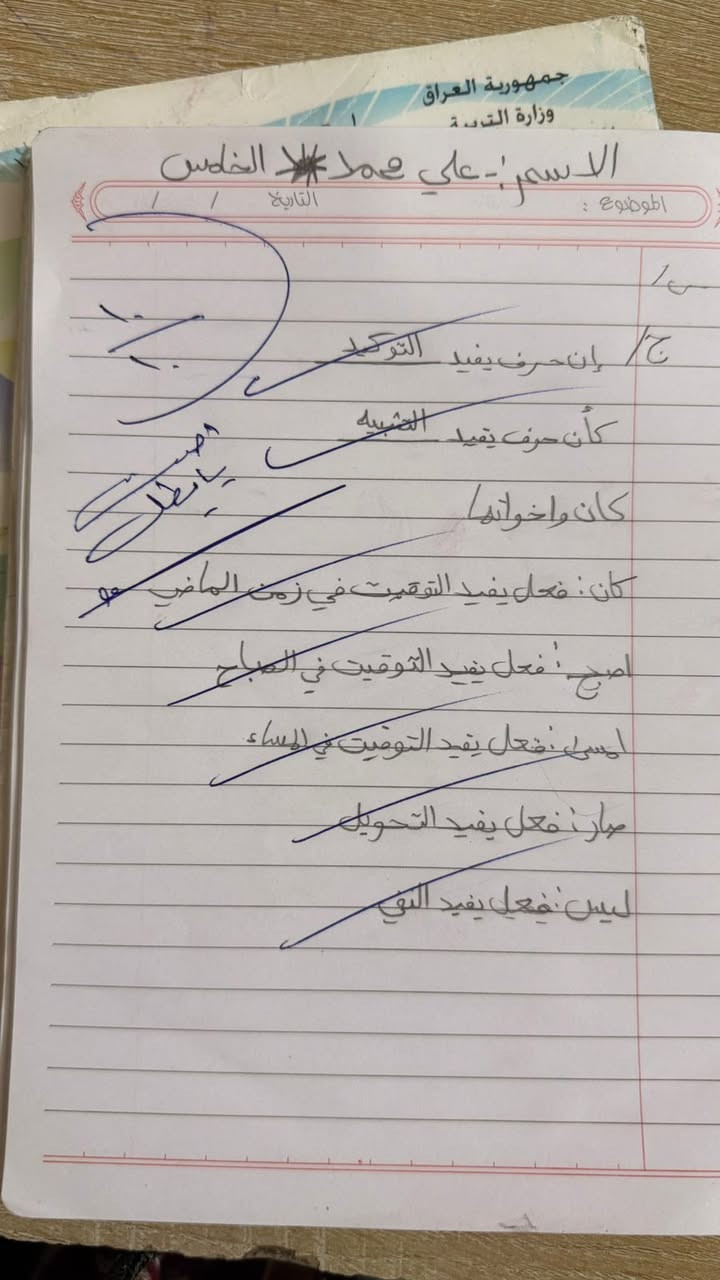 جمهورية العراق
وزارة التربية
الاسم:- علي محمد الخامس
الموضوع : التاريخ / /
س/
١٠
١٠
ج/ إن حرف يفيد التوكيد
كأن حرف يفيد التشبيه
احسنت
يا بطل
كان واخواتها/
كان: فعل يفيد التوقيت في زمن الماضي
اصبح: فعل يفيد التوقيت في الصباح
امسى: فعل يفيد التوقيت في المساء
صار: فعل يفيد التحويل
ليس: فعل يفيد النفي